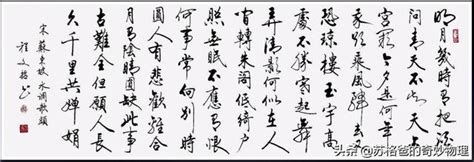 明月幾時有把酒
問青天不知天上
宮闕今夕是何年
我欲乘風歸去又
恐瓊樓玉宇高
處不勝寒起舞
弄清影何似在人
間轉朱閣低綺戶
照無眠不應有恨
何事常向別時
圓人有悲歡離合
月有陰晴圓缺此事
古難全但願人長
久千里共嬋娟
宋蘇東坡水調歌頭
程文
头条 @苏格爸的奇妙物理